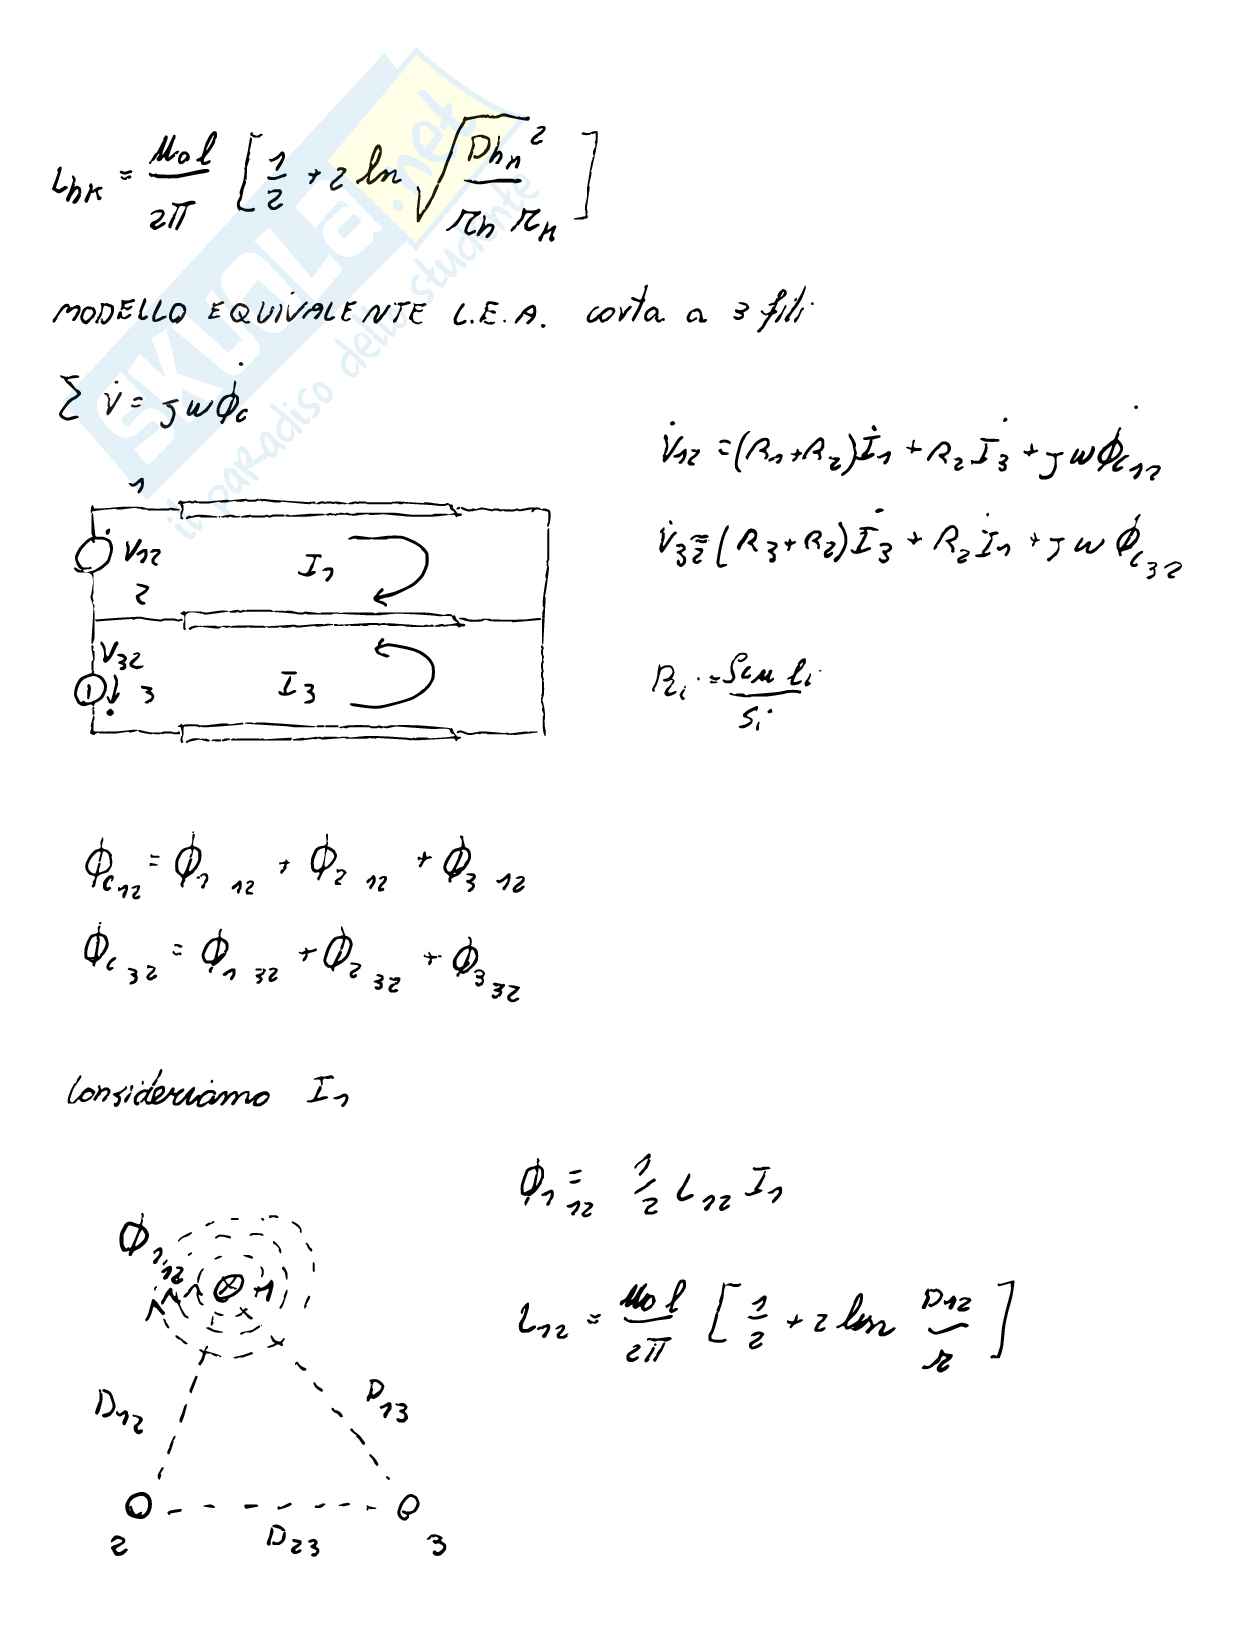 L_hk = μ0 l / 2π [ 1/2 + 2 ln √( D_hk² / r_h r_k ) ]
MODELLO EQUIVALENTE L.E.A. corta a 3 fili
Σ V̇ = jω ϕ̇_c
V̇12 = (R1+R2) İ1 + R2 İ3 + jω ϕ̇_c12
V̇32 = (R3+R2) İ3 + R2 İ1 + jω ϕ̇_c32
1
V12
I1
2
V32
I3
3
R_i = ρ_cu l_i / S_i
ϕ_c12 = ϕ1 12 + ϕ2 12 + ϕ3 12
ϕ_c32 = ϕ1 32 + ϕ2 32 + ϕ3 32
Consideriamo I1
ϕ1 12 = 1/2 L12 I1
ϕ1 12
1
L12 = μ0 l / 2π [ 1/2 + 2 ln D12 / r ]
D12
D13
2
D23
3
SKUOLA.net
il paradiso dello studente